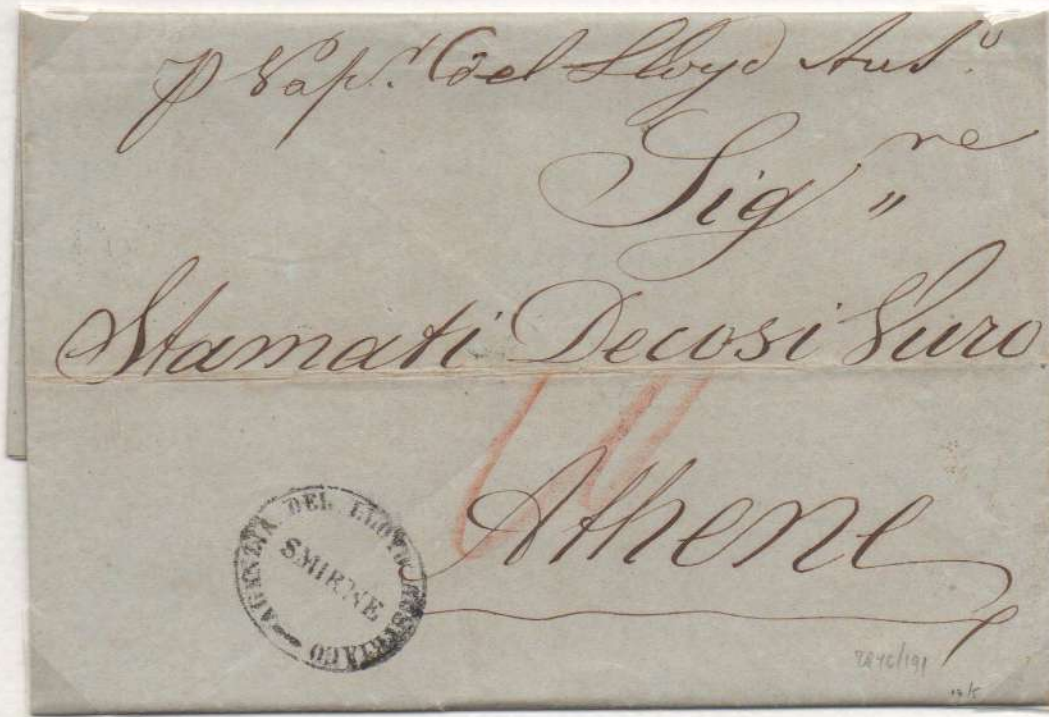 p Vap.r del Lloyd Aus.o
Sig.re "
Stamati Decosi Vuro
Athene
AGENZIA DEL LLOYD AUSTRIACO
SMIRNE